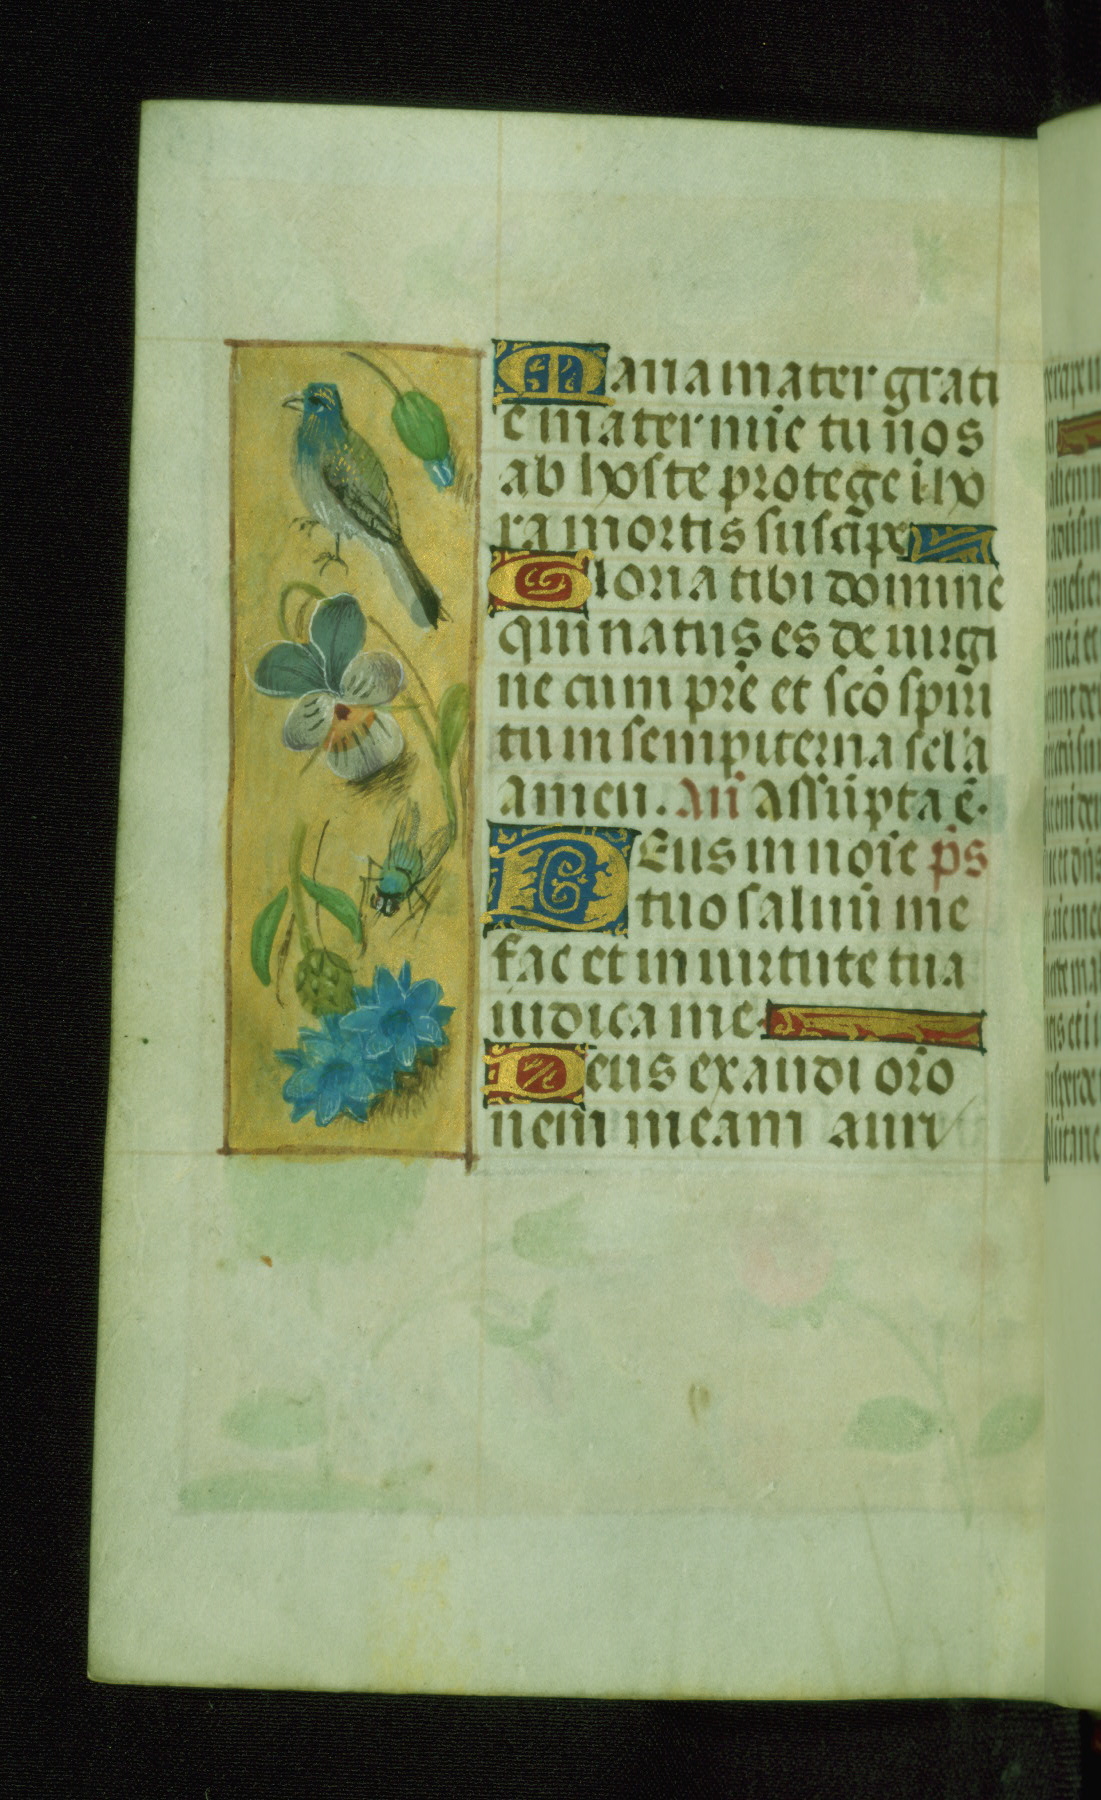 Maria mater grati
e mater mīe tu nos
ab hoste protege i ho
ra mortis suscipe
Gloria tibi domine
qui natus es de uirgi
ne cum pr̄e et scō spiri
tu in sempiterna secl'a
amen. Añ Assūpta ē.
DEus in noīe p̄s
tuo saluū me
fac et in uirtute tua
iudica me
Deus exaudi or̄o
nem meam auri